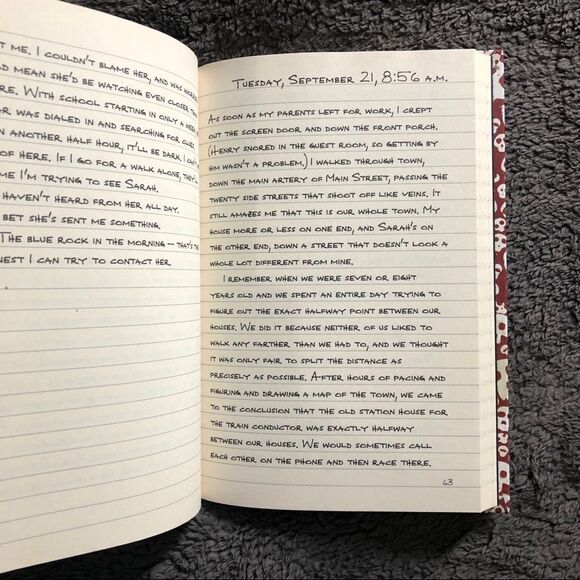 T ME. I COULDN'T BLAME HER, AND WAS
LD MEAN SHE'D BE WATCHING EVEN CLOSER
RE. WITH SCHOOL STARTING IN ONLY A
WAS DIALED IN AND SEARCHING FOR CLUES
N ANOTHER HALF HOUR, IT'LL BE DARK. I
OF HERE. IF I GO FOR A WALK ALONE,
ME I'M TRYING TO SEE SARAH.
HAVEN'T HEARD FROM HER ALL DAY.
BET SHE'S SENT ME SOMETHING.
THE BLUE ROCK IN THE MORNING — THAT'S
NEST I CAN TRY TO CONTACT HER.
TUESDAY, SEPTEMBER 21, 8:56 A.M.
AS SOON AS MY PARENTS LEFT FOR WORK, I CREPT
OUT THE SCREEN DOOR AND DOWN THE FRONT PORCH.
(HENRY SNORED IN THE GUEST ROOM, SO GETTING BY
HIM WASN'T A PROBLEM.) I WALKED THROUGH TOWN,
DOWN THE MAIN ARTERY OF MAIN STREET, PASSING THE
TWENTY SIDE STREETS THAT SHOOT OFF LIKE VEINS. IT
STILL AMAZES ME THAT THIS IS OUR WHOLE TOWN. MY
HOUSE MORE OR LESS ON ONE END, AND SARAH'S ON
THE OTHER END, DOWN A STREET THAT DOESN'T LOOK A
WHOLE LOT DIFFERENT FROM MINE.
I REMEMBER WHEN WE WERE SEVEN OR EIGHT
YEARS OLD AND WE SPENT AN ENTIRE DAY TRYING TO
FIGURE OUT THE EXACT HALFWAY POINT BETWEEN OUR
HOUSES. WE DID IT BECAUSE NEITHER OF US LIKED TO
WALK ANY FARTHER THAN WE HAD TO, AND WE THOUGHT
IT WAS ONLY FAIR TO SPLIT THE DISTANCE AS
PRECISELY AS POSSIBLE. AFTER HOURS OF PACING AND
FIGURING AND DRAWING A MAP OF THE TOWN, WE CAME
TO THE CONCLUSION THAT THE OLD STATION HOUSE FOR
THE TRAIN CONDUCTOR WAS EXACTLY HALFWAY
BETWEEN OUR HOUSES. WE WOULD SOMETIMES CALL
EACH OTHER ON THE PHONE AND THEN RACE THERE.
63